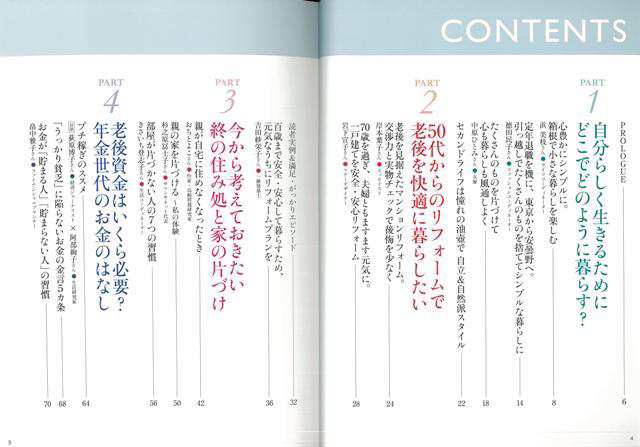 CONTENTS
PROLOGUE
6
PART
1
自分らしく生きるために
どこでどのように暮らす？
心豊かにシンプルに。
箱根で小さな暮らしを楽しむ
浜 美枝さん
8
定年退職を機に、東京から安曇野へ。
引っ越してたくさんのものを捨ててシンプルな暮らしに
14
たくさんのものを片づけて
心も暮らしも風通しよく
中原ひとみさん
18
セカンドライフは憧れの油壺で 自立&自然派スタイル
22
PART
2
50代からのリフォームで
老後を快適に暮らしたい
老後を見据えたマンションリフォーム。
交渉力と実物チェックで後悔を少なく
24
70歳を過ぎ、夫婦ともますます元気に。
一戸建てを安全・安心リフォーム
28
読者実例&満足・がっかりエピソード
32
百歳まで安全・安心して暮らすため、
元気なうちにリフォームプランを
吉田紗栄子さん
36
PART
3
今から考えておきたい
終の住み処と家の片づけ
親が自宅に住めなくなったとき
42
親の家を片づける ～私の体験
50
部屋が片づかない人の7つの習慣
56
PART
4
老後資金はいくら必要？
年金世代のお金のはなし
プチ稼ぎのススメ
荻原博子さん × 阿部絢子さん
64
「うっかり貧乏」に陥らないお金の金言5カ条
68
お金が「貯まる人」「貯まらない人」の習慣
畠中雅子さん
70
4
5